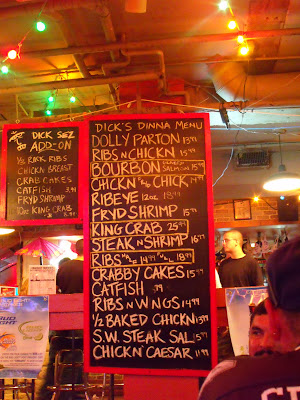 DICK SEZ
ADD-ON
1/2 RACK RIBS
CHICKEN BREAST
CRAB CAKES
CATFISH 3.91
FRYD SHRIMP
10oz KING CRAB
DICK'S DINNA MENU
DOLLY PARTON 13.99
RIBS N CHICKN 15.99
BOURBON CHICKEN SALMON 15.99
CHICKN RIB CHICK 14.99
RIBEYE 12oz. 18.99
FRYD SHRIMP 15.99
KING CRAB 25.99
STEAK N SHRIMP 16.99
RIBS 14.99 18.99
CRABBY CAKES 15.99
CATFISH
RIBS N WNGS 14.99
1/2 BAKED CHICKN 13.99
S.W. STEAK SAL 15.99
CHICKN CAESAR 11.99
BUD LIGHT